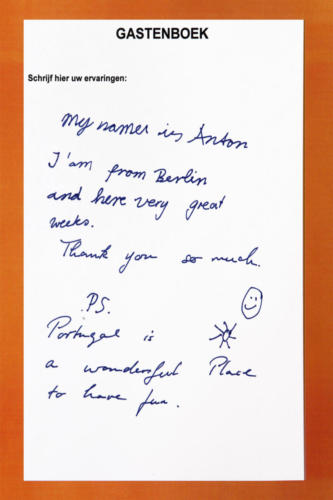 GASTENBOEK
Schrijf hier uw ervaringen:
My namer is Anton
I'am from Berlin
and here very great
weeks.
Thank you so much.
P.S.
Portugal is
a wonderful Place
to have fun.